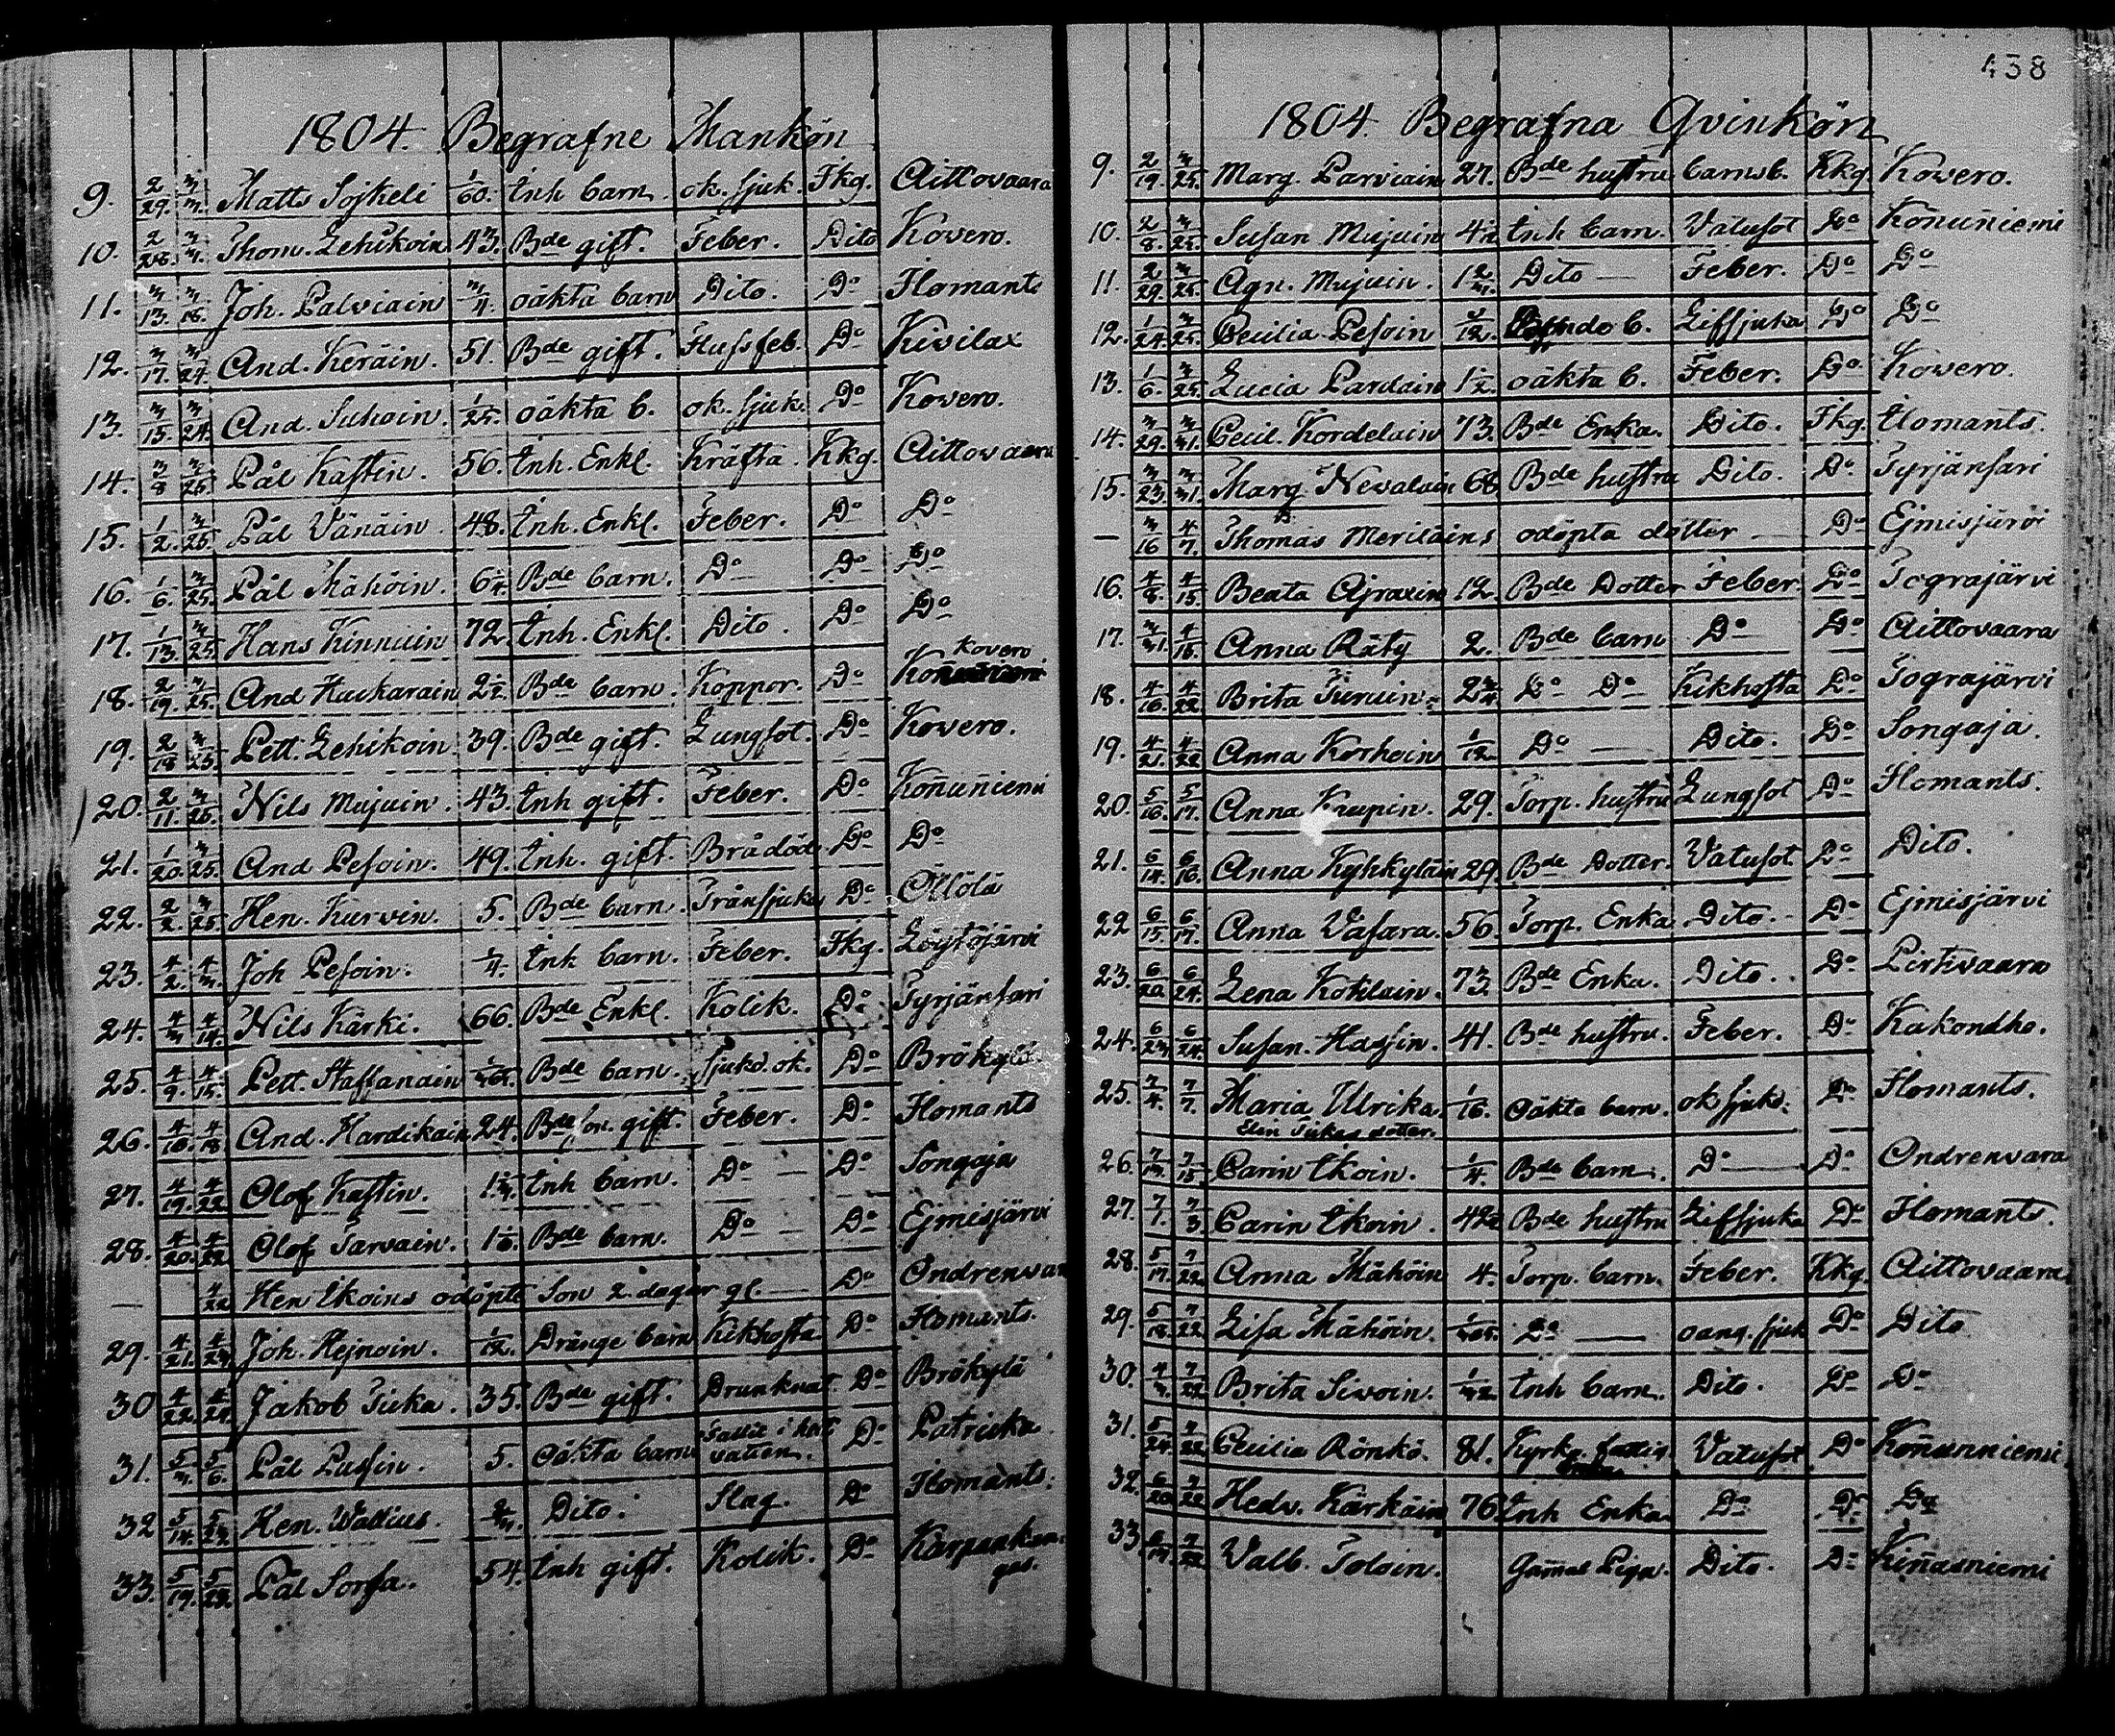 438
1804. Begrafne Mankön
9. 2/29. 3/3. Matts Sojkeli 1/60. Inh barn. ok. sjuk. Fkg. Aittovaara
10. 2/26. 3/3. Thom. Lehikoin 43. Bde gift. Feber. Dito Kovero.
11. 3/13. 3/16. Joh. Palviain 3/4. oäkta barn Dito. Do Ilomants
12. 3/17. 3/24. And. Keräin. 51. Bde gift. Flussfeb. Do Kivilax
13. 3/15. 3/24. And. Suhoin. 1/25. oäkta b. ok. sjuk. Do Kovero.
14. 3/8 3/25. Pål Kastin. 56. Inh. Enkl. Kräfta. Kkg. Aittovaara
15. 1/2. 3/25. Pål Vänäin. 48. Inh. Enkl. Feber. Do Do
16. 1/6. 3/25. Pål Mähöin. 6 1/4. Bde barn. Do Do Do
17. 1/13. 3/25. Hans Kinnuin 72. Inh. Enkl. Dito. Do Do
18. 2/19. 3/25. And Kuckarain 2 1/2. Bde barn. Koppor. Do Kovero
19. 2/18 3/25. Pett. Lehikoin 39. Bde gift. Lungsot. Do Kovero.
20. 2/11. 3/25. Nils Mujuin. 43. Inh gift. Feber. Do Koñuñiemi
21. 1/20. 3/25. And Pesoin. 49. Inh. gift. Brådöd Do Do
22. 2/2. 3/25. Hen. Kurvin. 5. Bde barn. Trånsjuka Do Ollölä
23. 4/2. 4/3. Joh Pesoin. 1/4. Inh barn. Feber. Fkg. Löytöjärvi
24. 4/3 4/14. Nils Kärki. 66. Bde Enkl. Kolik. Do Tyrjänsari
25. 4/9. 4/15. Pett. Staffanain Bde barn. sjukd. ok. Do Brökylä
26. 4/10. 4/18 And. Hardikain 24. Bde son. gift. Feber. Do Ilomants
27. 4/19. 4/22. Olof Kastin. Inh barn. Do Do Songaja
28. 4/20. 4/22. Olof Tarvain. 1 1/6. Bde barn. Do Do Ejmisjärvi
— 4/22 Hen Ikoins odöpte Son 2 dagar gl. — Do Ondrenvara
29. 4/21. 4/23. Joh. Hejnoin. 1/12. Drängs barn Kikhosta Do Ilomants.
30 4/22. 4/29. Jakob Tiika. 35. Bde gift. Drunknat Do Brökylä
31. 5/3. 5/6. Pål Pussin. 5. Oäkta barn Fallit i hett vatten. Do Patricka
32 5/14. 5/23. Hen. Wallius. 2/3. Dito. Slag. Do Ilomants.
33. 5/19. 5/23. Pål Sorsa. 54. Inh gift. Kolik. Do Karpankan-
gas.
1804. Begrafna Qvinkön
9. 2/19. 3/25. Marg. Parviain 27. Bde hustru barnsb. Kkg. Kovero.
10. 2/8. 3/25. Susan Mujuin 4 1/2 Inh barn. Vatusot Do Koñuñiemi
11. 2/29. 3/25. Agn. Mujuin. 1 2/3. Dito — Feber. Do Do
12. 1/24. 3/25. Cecilia Pesoin b. Lifsjuka Do Do
13. 1/6. 3/25. Lucia Pardain 1 1/2. oäkta b. Feber. Do Kovero.
14. 3/29. 3/31. Cecil. Kordelain 73. Bde Enka. Dito. Fkg. Ilomants.
15. 3/23. 3/31. Marg. Nevalain 66 Bde hustru Dito. Do Tyrjänsari
— 3/16 4/7. Thomas Meriläins odöpta dotter — Do Ejmisjärvi
16. 4/8. 4/15. Beata Ajraxin 12. Bde Dotter Feber. Do Tograjärvi
17. 3/31. 4/15. Anna Räty 2. Bde barn Do Do Aittovaara
18. 4/16. 4/22 Brita Turuin. 2 3/4. Do Do Kikhosta Do Tograjärvi
19. 4/21. 4/22 Anna Korhoin 1/12. Do — Dito. Do Songaja.
20. 5/16. 5/17. Anna Kaupin. 29. Torp. hustru Lungsot Do Ilomants.
21. 6/14. 6/16. Anna Kyhkyläin 29. Bde Dotter. Vatusot Do Dito.
22 6/15. 6/17. Anna Vasara. 56. Torp. Enka Dito. Do Ejmisjärvi
23. 6/20. 6/24. Lena Koklain. 73. Bde Enka. Dito. Do Lirkvaara
24. 6/23. 6/24. Susan. Hassin. 41. Bde hustru. Feber. Do Kakondho.
25. 7/4. 7/7. Maria Ulrika. 1/16. Oäkta barn. ok sjukd. Do Ilomants.
Elin Tiikas dotter.
26. 7/13. 7/15. Carin Ikoin. 1/4. Bde barn. Do Do Ondrenvara
27. 7/1. 7/3 Carin Ikoin. 42 Bde hustru Lifsjuka Do Ilomants.
28. 5/17. 7/22 Anna Mähöin 4. Torp. barn. Feber. Kkg. Aittovaara
29. 5/18. 7/22 Lisa Mähöin. Do — oang. sjuk Do Dito
30. 4/3. 7/22 Brita Sivoin. 1/32 Inh barn. Dito. Do Do
31. 5/24. 7/22 Cecilia Rönkö. 81. Kyrko fattig Enka Vatusot Do Koñunniemi
32. 6/20 7/22 Hedv. Kärkäin 76 Inh Enka Do Do Do
33 7/22 Valb. Toloin. Gam̃al Piga. Dito. Do Kim̃asniemi